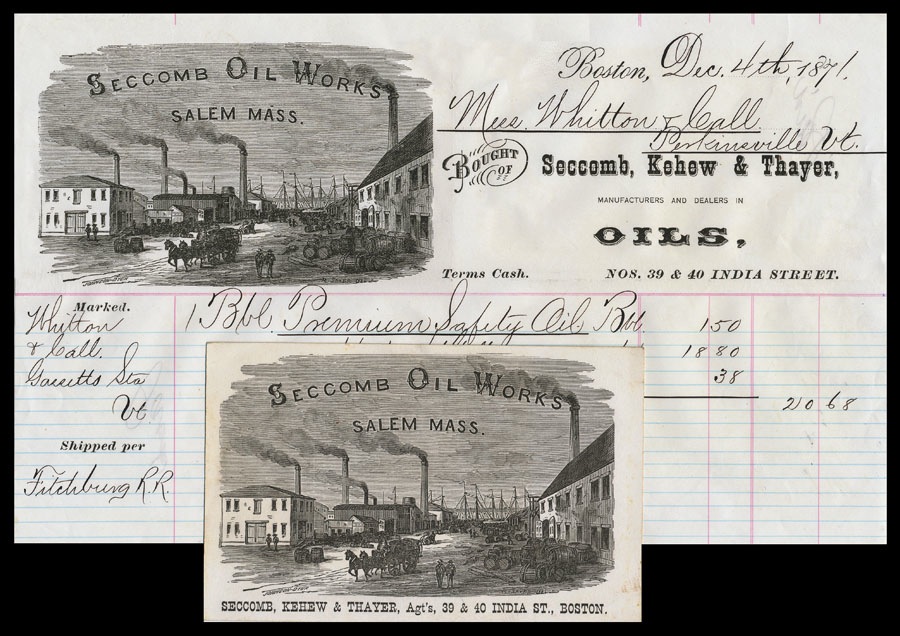 SECCOMB OIL WORKS
SALEM MASS.
Boston, Dec. 4th, 1871.
Mess Whitton & Call
Perkinsville Vt.
BOUGHT OF
Seccomb, Kehew & Thayer,
MANUFACTURERS AND DEALERS IN
OILS,
Terms Cash.
NOS. 39 & 40 INDIA STREET.
Marked.
Whitton
& Call.
Gassetts Sta
Vt
Shipped per
Fitchburg R.R.
1 Bbl Premium Safety Oil Bbl. 150
18 80
38
20 68
SECCOMB OIL WORKS
SALEM MASS.
SECCOMB, KEHEW & THAYER, Agt's, 39 & 40 INDIA ST., BOSTON.